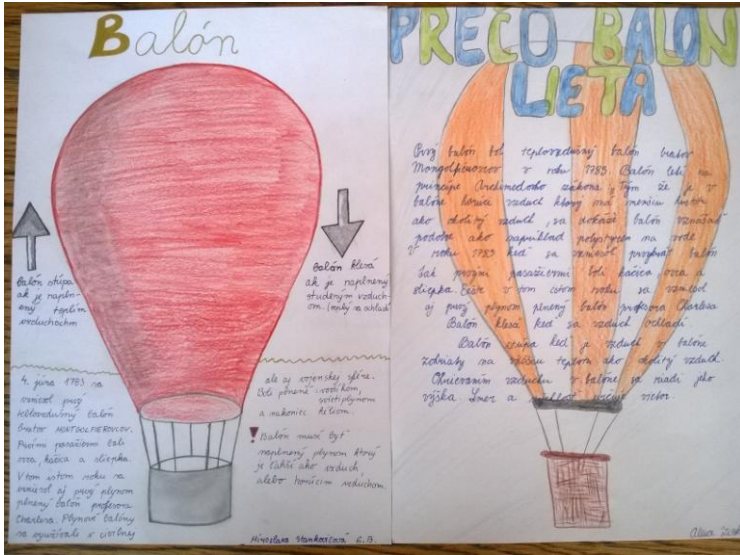 Balón
Balón stúpa
ak je napln-
ený teplím
vzduchom
Balón klesá
ak je naplnený
studeným vzduch-
om
4. júna 1783 sa
vzniesol prvý
teplovzdušný balón
bratov MONTGOLFIEROVCOV.
Prvími pasažiermi boli
ovca, kačica a sliepka.
V tom istom roku sa
vzniesol aj prvý plynom
plnený balón profesora
Charlesa. Plynové balóny
sa využívali v civilnej
ale aj vojenskej sfére.
Boli plnené vodíkom,
svietiplynom
a nakoniec héliom.
! Balón musí byť
naplnený plynom ktorý
je ľahší ako vzduch,
alebo horúcim vzduchom.
Miroslava 6.B.
PREČO BALÓN
LIETA
Prvý balón bol teplovzdušný balón bratov
v roku 1783. Balón letí na
princípe Archimedovho zákona. Tým že je v
balóne horúci vzduch ktorý má menšiu hustotu
ako okolitý vzduch, sa dokáže balón vznášať
podobne ako napríklad polystyrén na vode
V roku 1783 keď sa vzniesol prvýkrát balón
tak prvými pasažiermi boli kačica ovca a
sliepka. Ešte v tom istom roku sa vzniesol
aj prvý plynom plnený balón profesora Charlesa
Balón klesá keď sa vzduch ochladí.
Balón stúpa keď je vzduch v balóne
zohriaty na väčšiu teplotu ako okolitý vzduch.
Ohrievaním vzduchu v balóne sa riadi jeho
výška. Smer a rýchlosť určuje vietor.